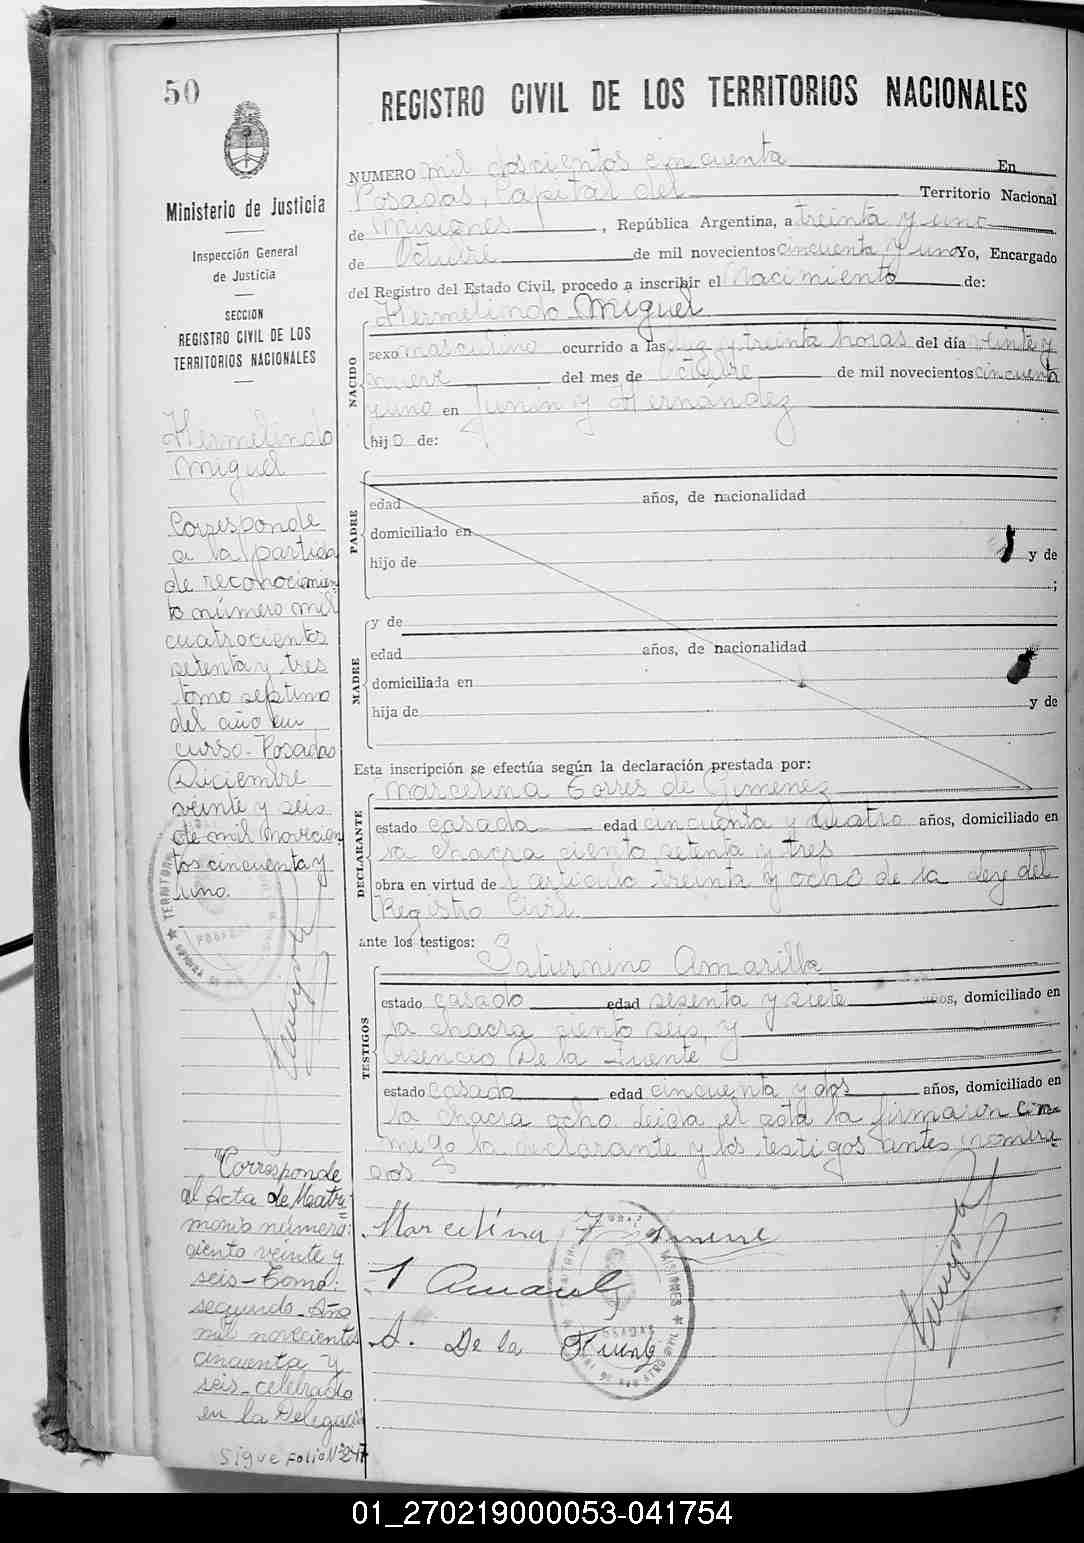 50
Ministerio de Justicia
Inspección General
de Justicia
SECCION
REGISTRO CIVIL DE LOS
TERRITORIOS NACIONALES
Hermelindo
Miguel
Corresponde
a la partida
de reconocimien
to número mil
cuatrocientos
setenta y tres
tomo septimo
del año en
curso. Posadas
Diciembre
veinte y seis
de mil novecien
tos cincuenta y
uno.
"Corresponde
al Acta de Matri
monio número:
ciento veinte y
seis - Tomo:
segundo - Año
mil novecientos
cincuenta y
seis - celebrado
en la Delegaci
Sigue folio Nº 247
REGISTRO CIVIL DE LOS TERRITORIOS NACIONALES
NUMERO mil doscientos cincuenta En
Posadas, Capital del Territorio Nacional
de Misiones, República Argentina, a treinta y uno
de Octubre de mil novecientos cincuenta y uno Yo, Encargado
del Registro del Estado Civil, procedo a inscribir el Nacimiento de:
Hermelindo Miguel
NACIDO
sexo masculino ocurrido a las diez y treinta horas del día veinte y
nueve del mes de Octubre de mil novecientos cincuenta
y uno en Junin y Hernandez
hijo de:
PADRE
edad años, de nacionalidad
domiciliado en
hijo de y de
;
MADRE
y de
edad años, de nacionalidad
domiciliada en
hija de y de
Esta inscripción se efectúa según la declaración prestada por:
DECLARANTE
Marcelina Torres de Gimenez
estado casada edad cincuenta y cuatro años, domiciliado en
la chacra ciento setenta y tres
obra en virtud del articulo treinta y ocho de la Ley del
Registro Civil.
ante los testigos:
TESTIGOS
Saturnino Amarilla
estado casado edad sesenta y siete años, domiciliado en
la chacra ciento seis, y
Asencio De la Fuente
estado casado edad cincuenta y dos años, domiciliado en
la chacra ocho. Leida el acta la firmaron con
migo la declarante y los testigos antes nombra
dos.
Marcelina
A. De la Fuente
01_270219000053-041754